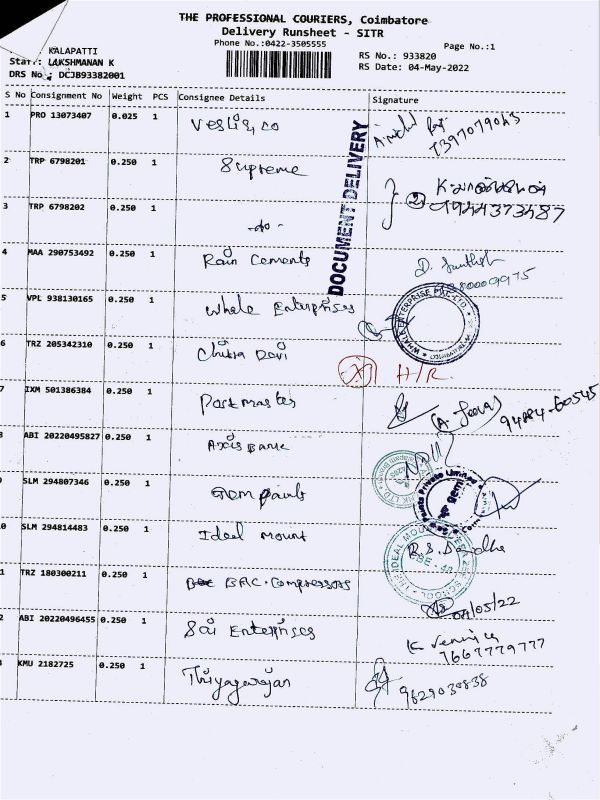 THE PROFESSIONAL COURIERS, Coimbatore
Delivery Runsheet - SITR
Phone No.:0422-3505555
Page No.:1
KALAPATTI
Staff: LAKSHMANAN K
DRS No.: DCJB93382001
RS No.: 933820
RS Date: 04-May-2022
S No Consignment No Weight PCS Consignee Details Signature
1 PRO 13073407 0.025 1
DOCUMENT DELIVERY
2 TRP 6798201 0.250 1 Supreme
3 TRP 6798202 0.250 1 -do-
4 MAA 290753492 0.250 1 Rain Cements
5 VPL 938130165 0.250 1 Whale Enterprises
WHALE ENTERPRISE PVT. LTD.
6 TRZ 205342310 0.250 1 Chitra Devi H/R
7 IXM 501386384 0.250 1 Postmaster
94884-60545
ABI 20220495827 0.250 1 Axis Bank
SLM 294807346 0.250 1 Gem paints
0 SLM 294814483 0.250 1 Ideal Mount
1 TRZ 180300211 0.250 1 BAC. Compressors
04/05/22
2 ABI 20220496455 0.250 1 Sai Enterprises
7667779777
KMU 2182725 0.250 1 Thiyagarajan
9629030838